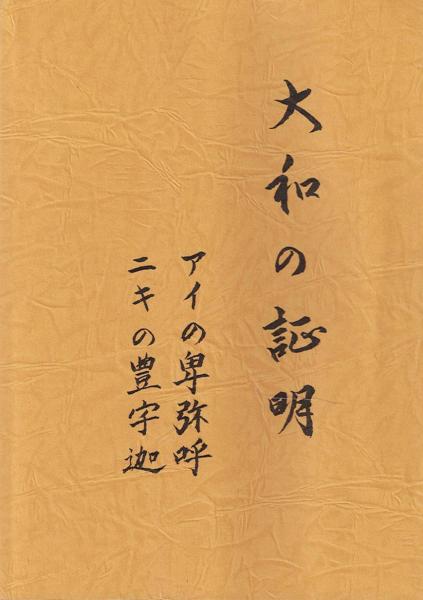 大和の証明
アイの卑弥呼
ニキの豊宇迦